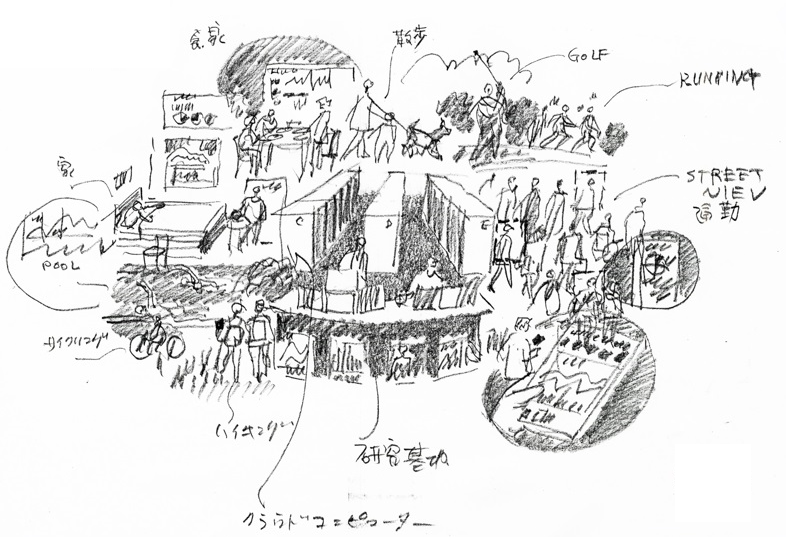 散歩
GOLF
RUNNING
家
STREET
VIEW
通勤
C
D
E
POOL
サイクリング
ハイキング
研究基地
クラウドコンピューター